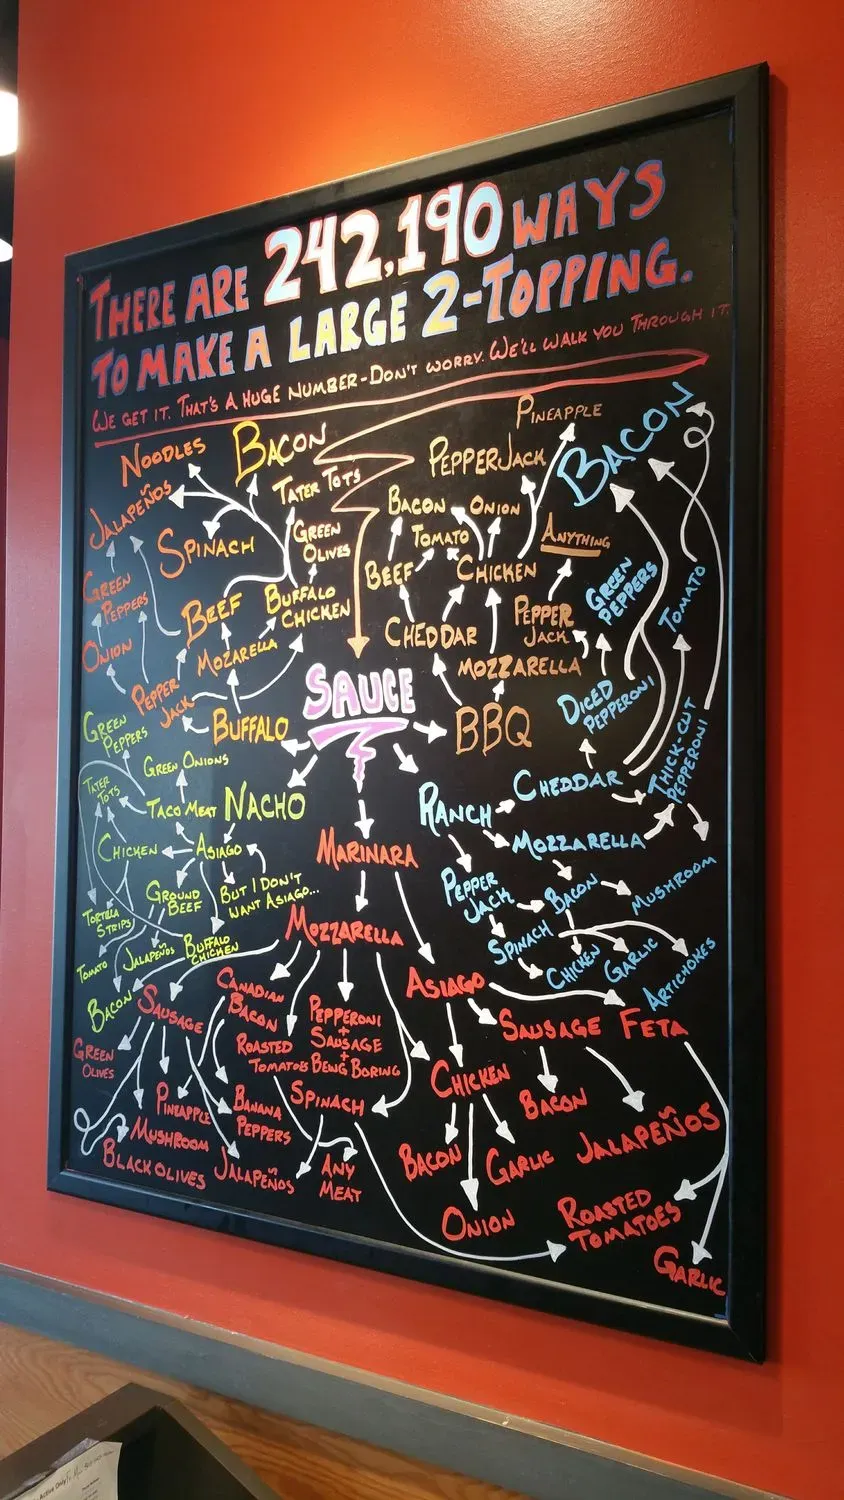 THERE ARE 242,190 WAYS
TO MAKE A LARGE 2-TOPPING.
WE GET IT. THAT'S A HUGE NUMBER-DON'T WORRY. WE'LL WALK YOU THROUGH IT.
SAUCE
BUFFALO
PEPPER
JACK
ONION
GREEN
PEPPERS
JALAPEÑOS
NOODLES
BACON
SPINACH
BEEF
MOZARELLA
BUFFALO
CHICKEN
GREEN
OLIVES
TATER TOTS
BBQ
CHEDDAR
BEEF
BACON
TOMATO
ONION
CHICKEN
PEPPERJACK
PINEAPPLE
MOZZARELLA
PEPPER
JACK
ANYTHING
RANCH
CHEDDAR
DICED
PEPPERONI
GREEN
PEPPERS
BACON
TOMATO
THICK-CUT
PEPPERONI
MOZZARELLA
MUSHROOM
PEPPER
JACK
BACON
SPINACH
CHICKEN
GARLIC
ARTICHOKES
NACHO
ASIAGO
BUT I DON'T
WANT ASIAGO...
TACO MEAT
GREEN ONIONS
GREEN
PEPPERS
TATER
TOTS
CHICKEN
GROUND
BEEF
TORTILLA
STRIPS
TOMATO
JALAPEÑOS
BUFFALO
CHICKEN
BACON
MARINARA
MOZZARELLA
SAUSAGE
GREEN
OLIVES
PINEAPPLE
MUSHROOM
BLACK OLIVES
CANADIAN
BACON
BANANA
PEPPERS
JALAPEÑOS
ROASTED
TOMATOES
PEPPERONI
+
SAUSAGE
+
BEING BORING
SPINACH
ANY
MEAT
ASIAGO
CHICKEN
BACON
GARLIC
ONION
SAUSAGE
BACON
JALAPEÑOS
FETA
ROASTED
TOMATOES
GARLIC